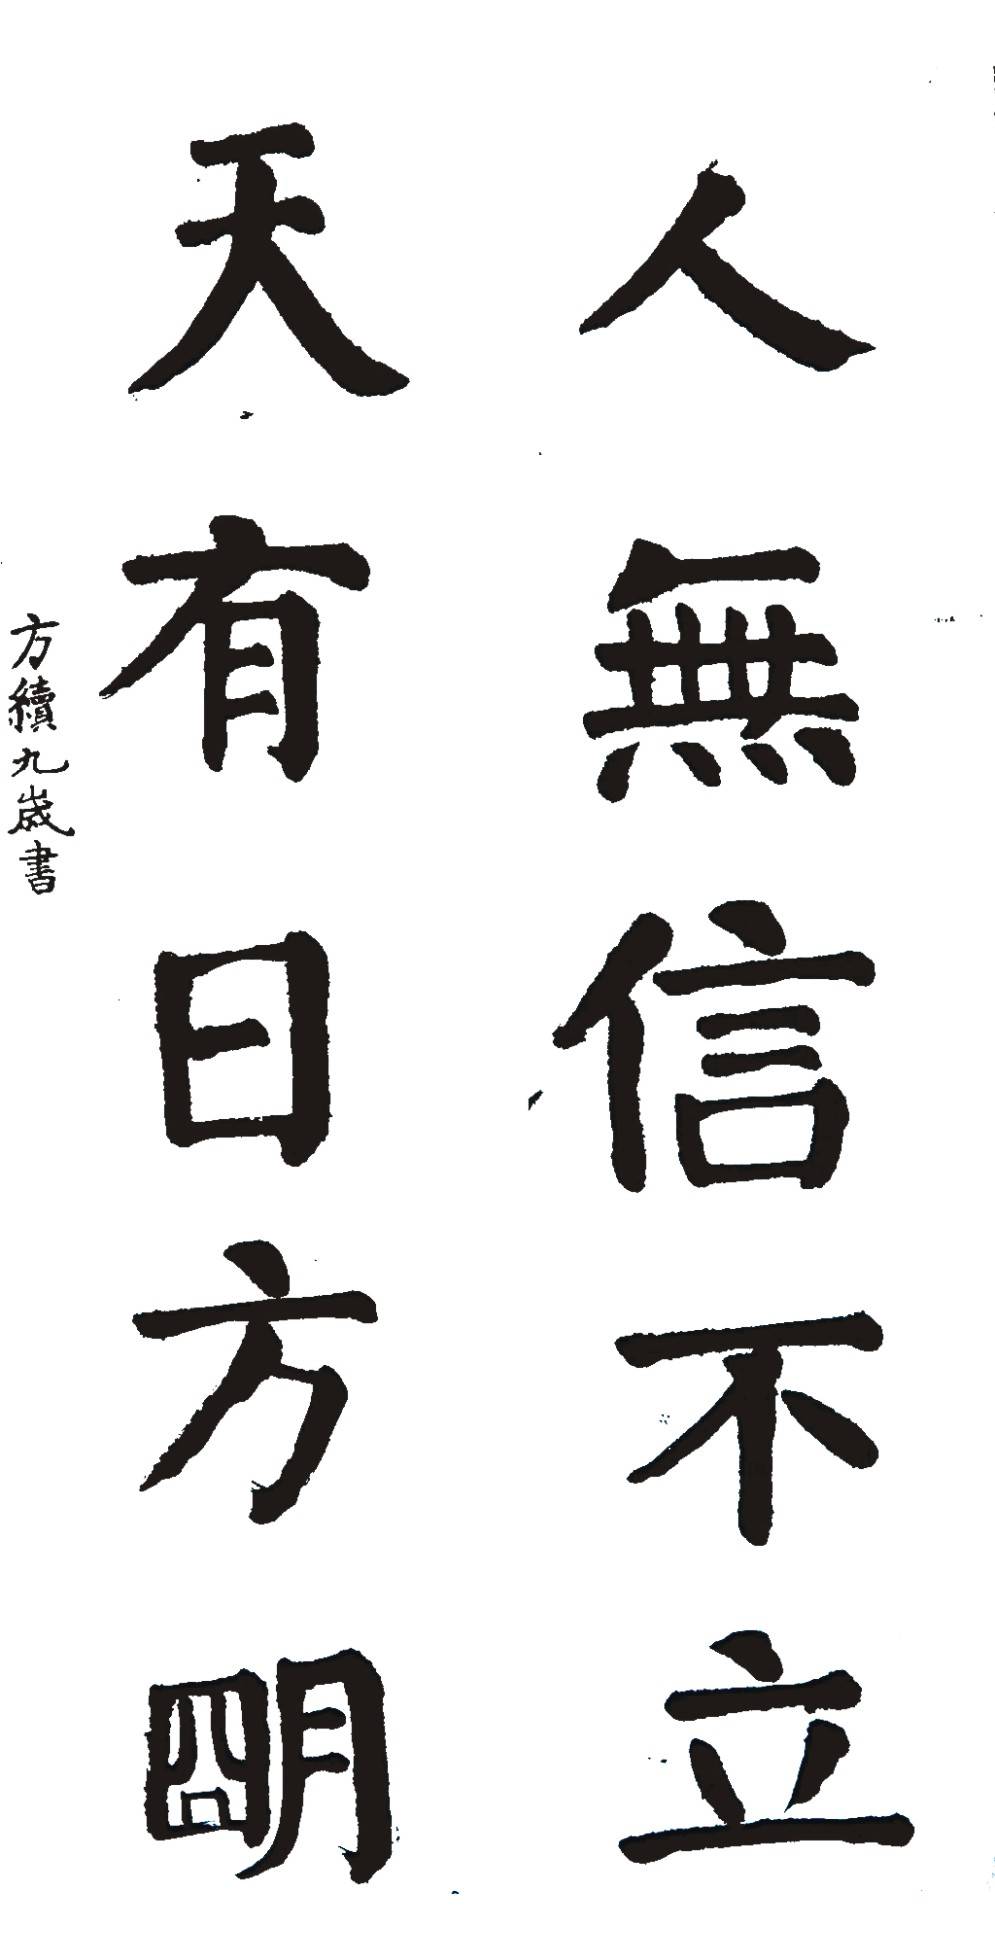 人無信不立
天有日方朙
方續九歲書